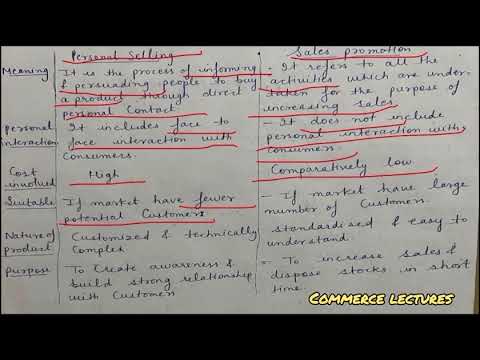 Personal Selling
Sales promotion
Meaning
It is the process of informing
& persuading people to buy
a product through direct
personal Contact
- It refers to all the
activities which are under-
taken for the purpose of
increasing sales
Personal
interaction
It includes face to
face interaction with
Consumers.
- It does not include
personal interaction with
consumers
Cost
involved
High
Comparatively low
Suitable
If market have fewer
potential Customers
- If market have large
number of Customers.
Nature of
product
Customized & technically
Complex
standardised & easy to
understand.
Purpose
To Create awareness &
build strong relationship
with Customers
- To increase sales &
dispose stocks in short
time.
COMMERCE LECTURES